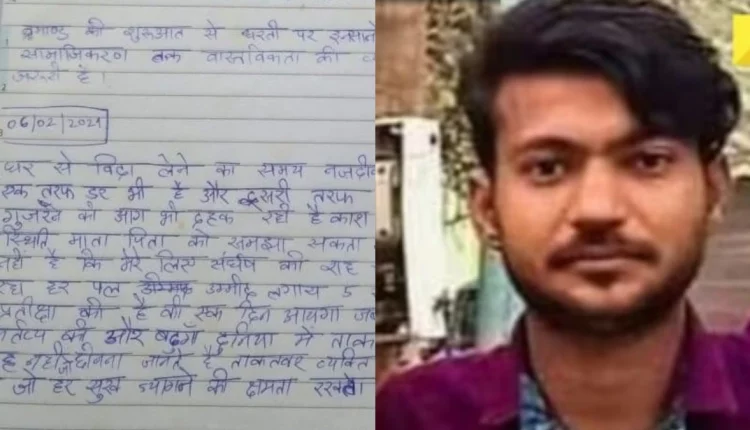 ब्रमाण्ड की शुरूआत से धरती पर इनसान
सामाजिकरण तक वास्तविकता की
जरूरी है।
06/02/2021
घर से विदा लेने का समय नजदीक
एक तरफ डर भी है और दूसरी तरफ
गुजरने की आग भी दहक रही है काश
स्थिति माता पिता को समझा सकता
नही है कि मेरे लिए संघर्ष की राह
हर पल उम्मीद लगाय 5
प्रतीक्षा की है की एक दिन आयगा
की और बढूँगा दुनिया में ताक
जानते है ताकतवर व्यक्ति
जो हर सुख त्यागने की क्षमता रखता